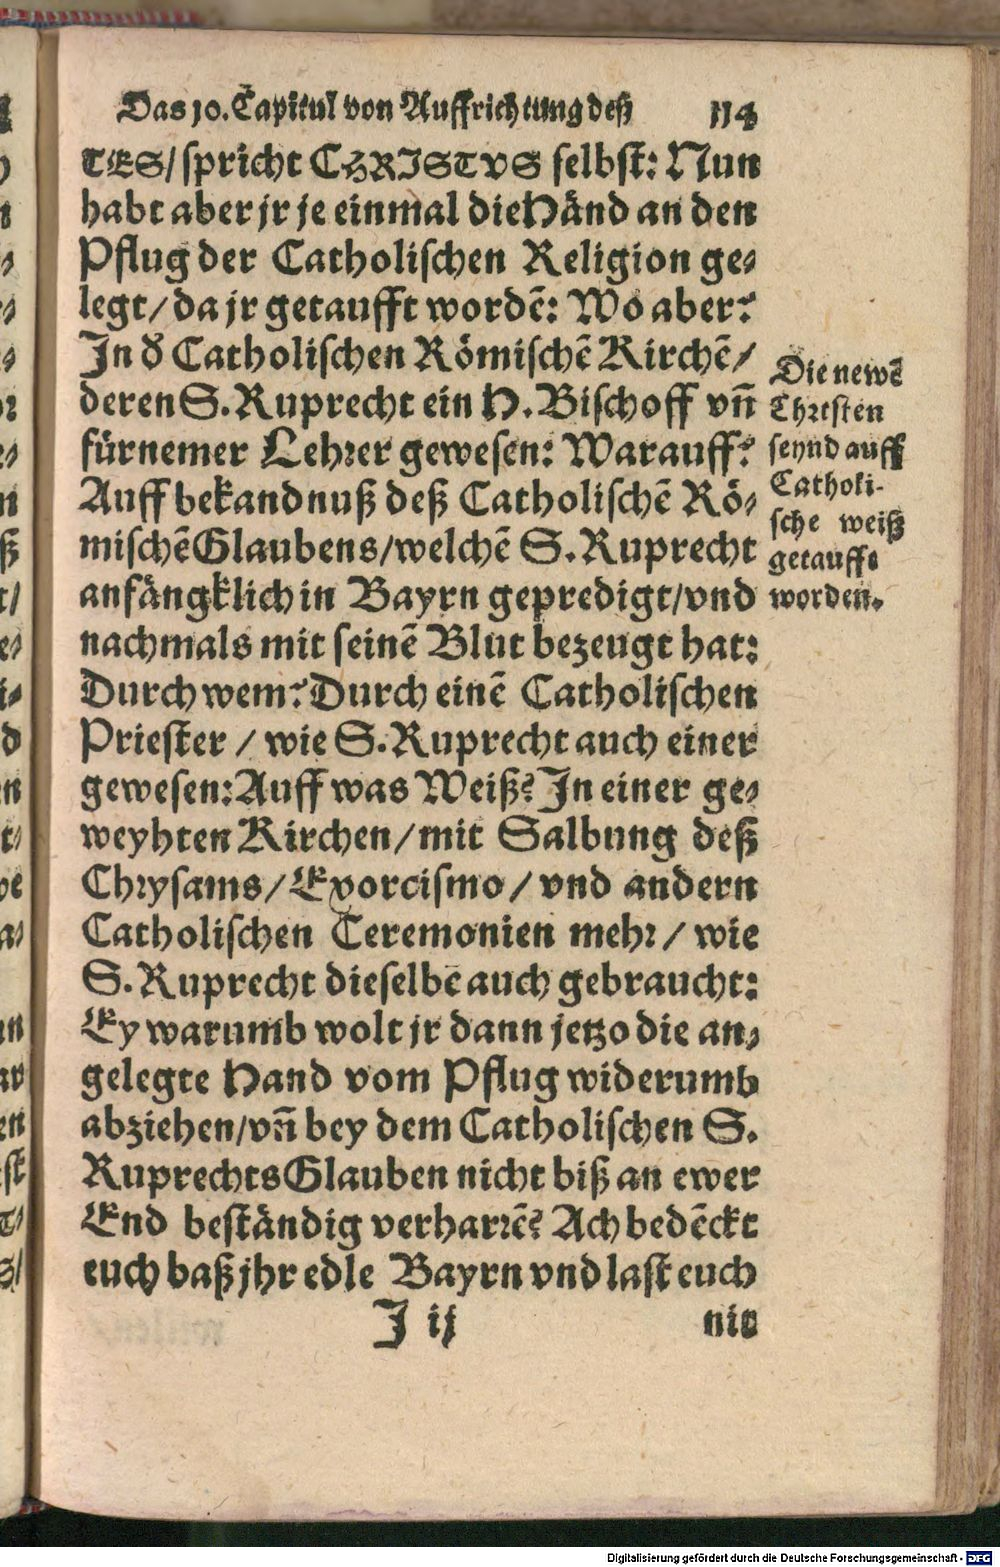 Das 10. Capitul von Auffrichtung deß 114
TES/ spricht CHRISTVS selbst: Nun
habt aber jr je einmal die Händ an den
Pflug der Catholischen Religion ge⸗
legt/ da jr getaufft wordē: Wo aber?
In ð Catholischen Römischē Kirchē/
deren S. Ruprecht ein H. Bischoff vñ
fürnemer Lehꝛer gewesen: Warauff?
Auff bekandnuß deß Catholischē Rö⸗
mischē Glaubens/ welchē S. Ruprecht
anfängklich in Bayrn gepredigt/ vnd
nachmals mit seinē Blut bezeugt hat:
Durch wem? Durch einē Catholischen
Priester / wie S. Ruprecht auch einer
gewesen: Auff was Weiß? In einer ge⸗
weyhten Kirchen/ mit Salbung deß
Chꝛysams/ Exorcismo / vnd andern
Catholischen Ceremonien mehꝛ / wie
S. Ruprecht dieselbē auch gebraucht:
Ey warumb wolt jr dann jetzo die an⸗
gelegte Hand vom Pflug widerumb
abziehen/ vñ bey dem Catholischen S.
Ruprechts Glauben nicht biß an ewer
End beständig verharꝛē? Ach bedēckt
euch baß jhr edle Bayrn vnd last euch
J ij nit
Die newē
Chꝛisten
seynd auff
Catholi-
sche weiß
getaufft
worden.
Digitalisierung gefördert durch die Deutsche Forschungsgemeinschaft - DFG